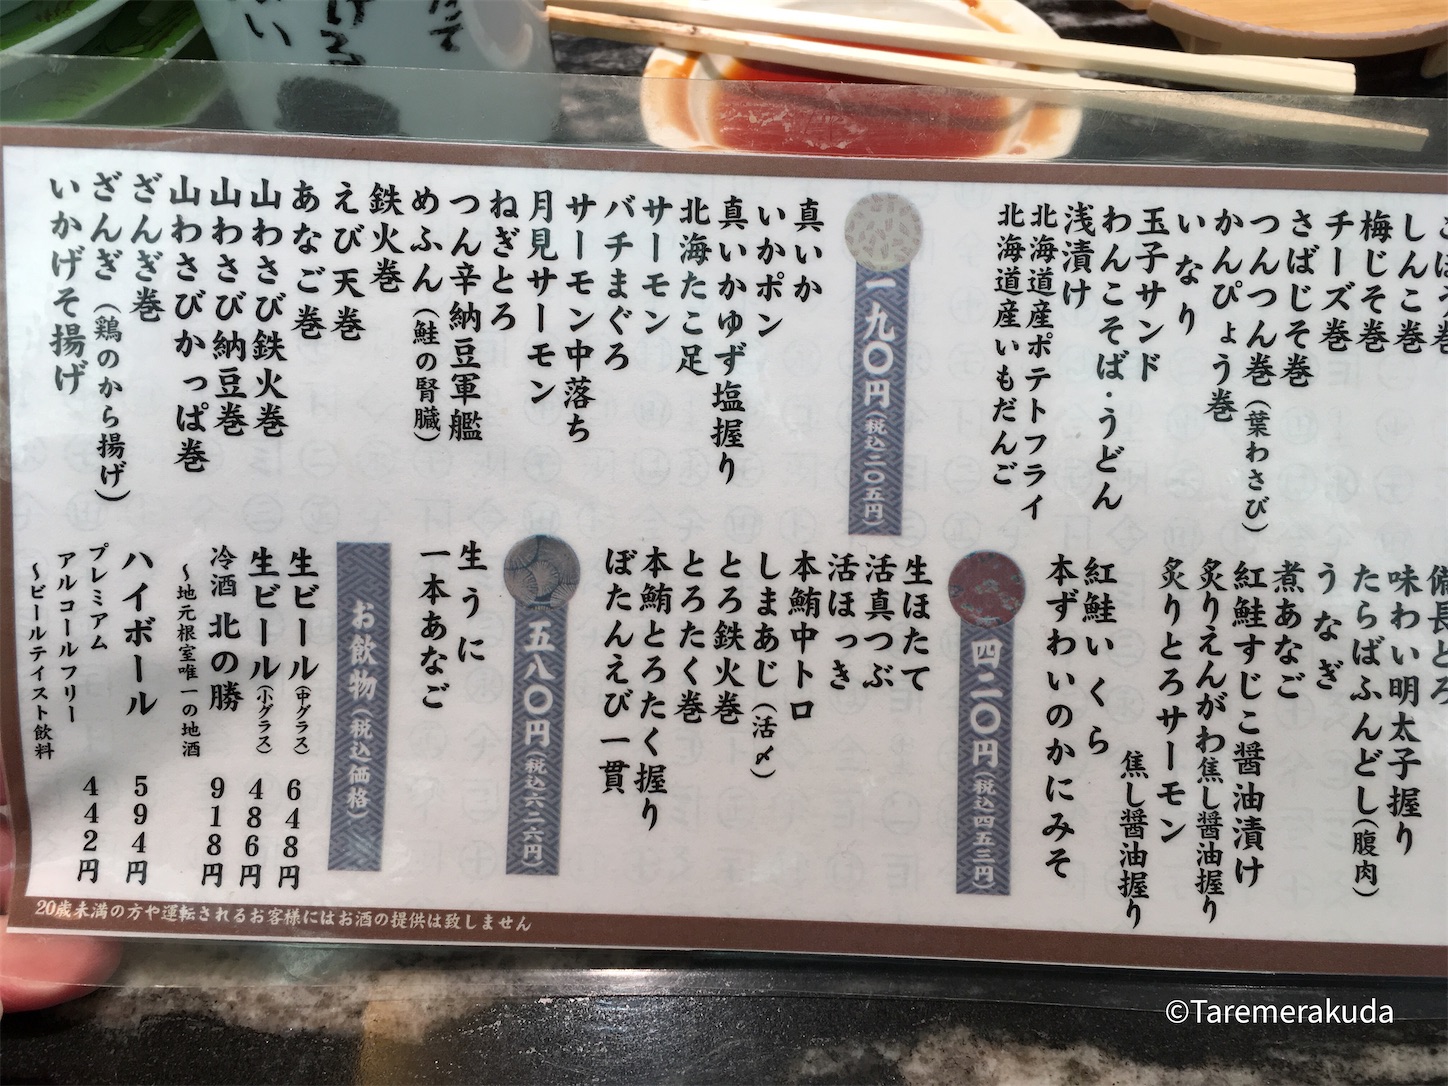 しんこ巻
梅じそ巻
チーズ巻
さばじそ巻
つんつん巻(葉わさび)
かんぴょう巻
いなり
玉子サンド
わんこそば・うどん
浅漬け
北海道産ポテトフライ
北海道産いもだんご
一九〇円(税込二〇五円)
真いか
いかポン
真いかゆず塩握り
北海たこ足
サーモン
バチまぐろ
サーモン中落ち
月見サーモン
ねぎとろ
つん辛納豆軍艦
めふん(鮭の腎臓)
鉄火巻
えび天巻
あなご巻
山わさび鉄火巻
山わさび納豆巻
山わさびかっぱ巻
ざんぎ巻
ざんぎ(鶏のから揚げ)
いかげそ揚げ
備長とろ
味わい明太子握り
たらばふんどし(腹肉)
うなぎ
煮あなご
紅鮭すじこ醤油漬け
炙りえんがわ焦し醤油握り
炙りとろサーモン
焦し醤油握り
紅鮭いくら
本ずわいのかにみそ
四二〇円(税込四五三円)
生ほたて
活真つぶ
活ほっき
本鮪中トロ
しまあじ(活〆)
とろ鉄火巻
とろたく巻
本鮪とろたく握り
ぼたんえび一貫
五八〇円(税込六二六円)
生うに
一本あなご
お飲物(税込価格)
生ビール(中グラス) 648円
生ビール(小グラス) 486円
冷酒 北の勝 918円
～地元根室唯一の地酒
ハイボール 594円
プレミアム
アルコールフリー 442円
～ビールテイスト飲料
20歳未満の方や運転されるお客様にはお酒の提供は致しません
©Taremerakuda